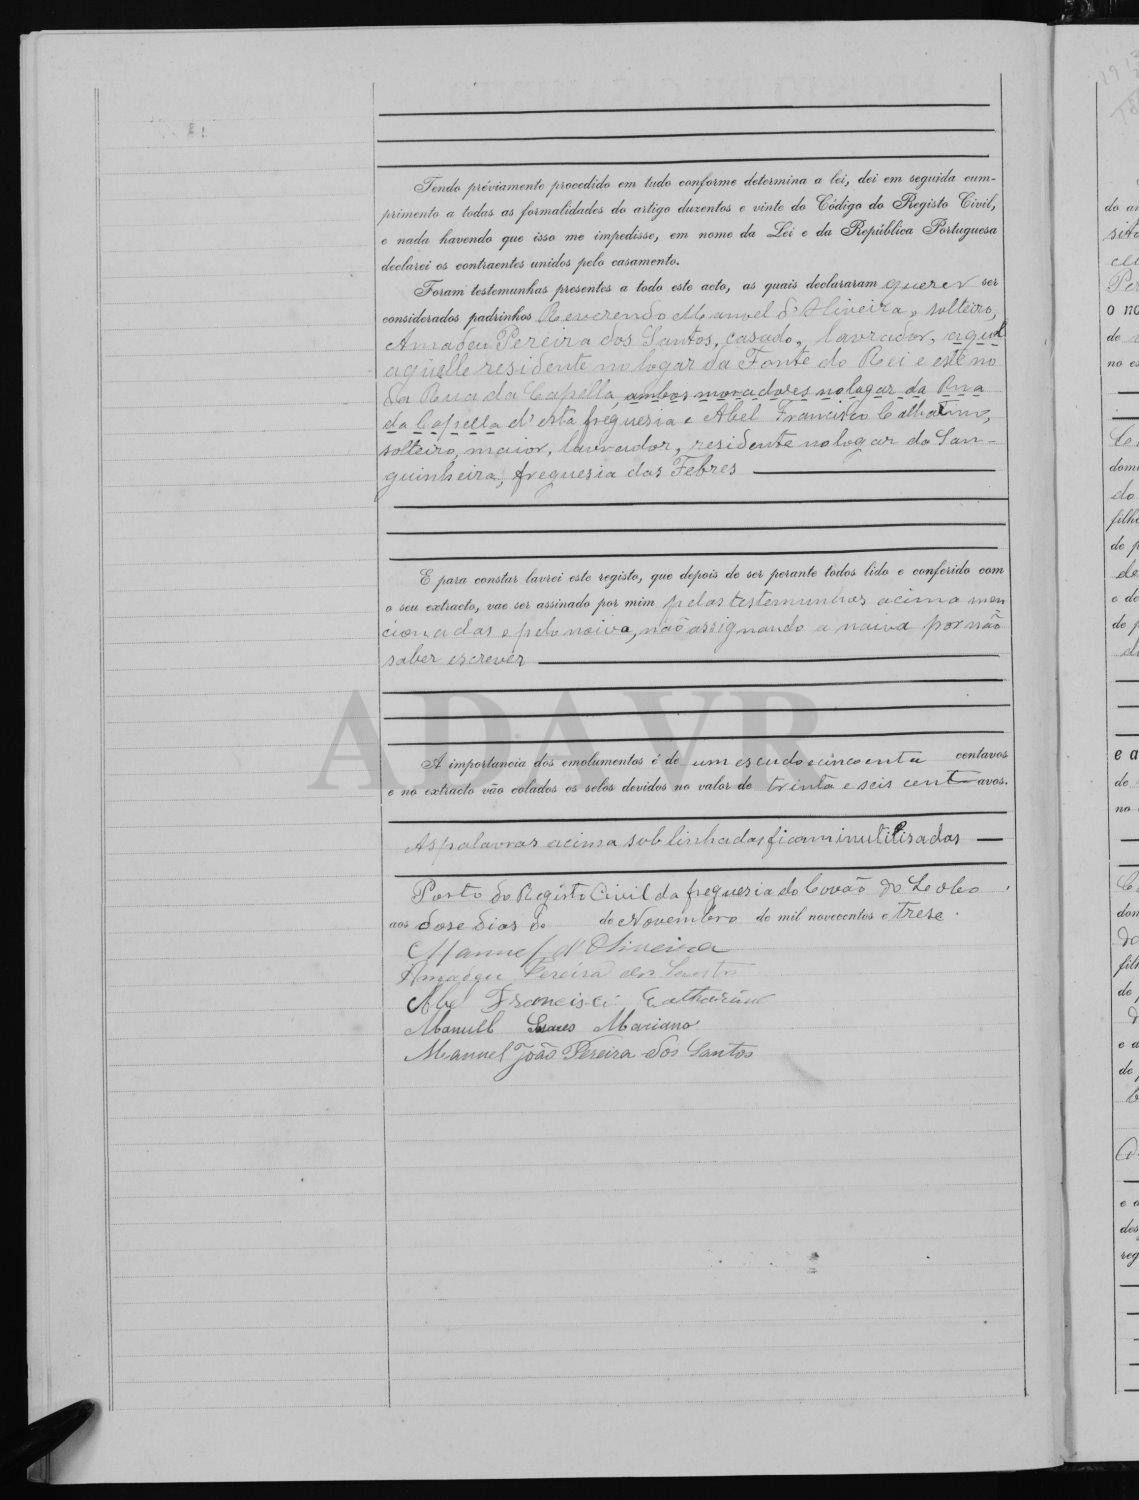 Tendo préviamente procedido em tudo conforme determina a lei, dei em seguida cum-
primento a todas as formalidades do artigo duzentos e vinte do Código do Registo Civil,
e nada havendo que isso me impedisse, em nome da Lei e da República Portuguesa
declarei os contraentes unidos pelo casamento.
Foram testemunhas presentes a todo este acto, as quais declararam querer ser
considerados padrinhos Reverendo Manuel d'Oliveira, solteiro,
Amadeu Pereira dos Santos, casado, lavrador,
aquelle residente no logar da Fonte do Rei e este no
da Rua da Capella, ambos moradores no logar da Rua
da Capella d'esta freguesia e Abel Francisco Catharino,
solteiro, maior, lavrador, residente no logar da San-
guinheira, freguesia das Febres
E para constar lavrei este registo, que depois de ser perante todos lido e conferido com
o seu extracto, vae ser assinado por mim pelas testemunhas acima men
cionadas e pelo noivo, não assignando a noiva por não
saber escrever
ADAVR
A importancia dos emolumentos é de um escudo e cincoenta centavos
e no extracto vão colados os selos devidos no valor de trinta e seis centavos.
As palavras acima sublinhadas ficam inutilisadas
Posto do Registo Civil da freguesia do Covão do Lobo
aos dose dias de Novembro de mil novecentos e trese.
Manuel d'Oliveira
Amadeu Pereira dos Santos
Abel Francisco Catharino
Manuel Soares Mariano
Manuel João Pereira dos Santos